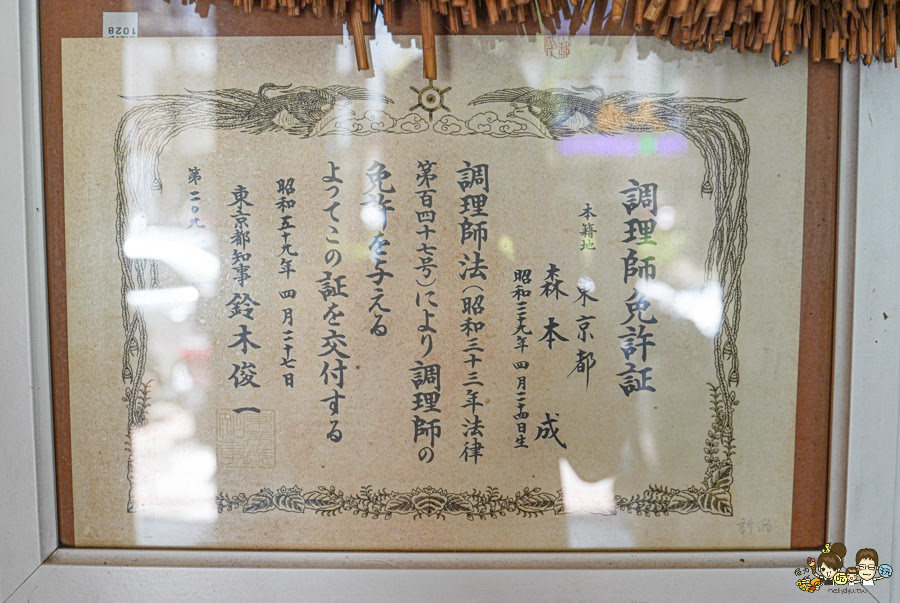 調理師免許証
本籍地 東京都
森本 成
昭和二九年 四月二四日生
調理師法(昭和三十三年法律
第百四十七号)により調理師の
免許を与える
よってこの証を交付する
昭和五十九年 四月二十七日
東京都知事 鈴木俊一
第二〇九
1028
nellydyu.tw